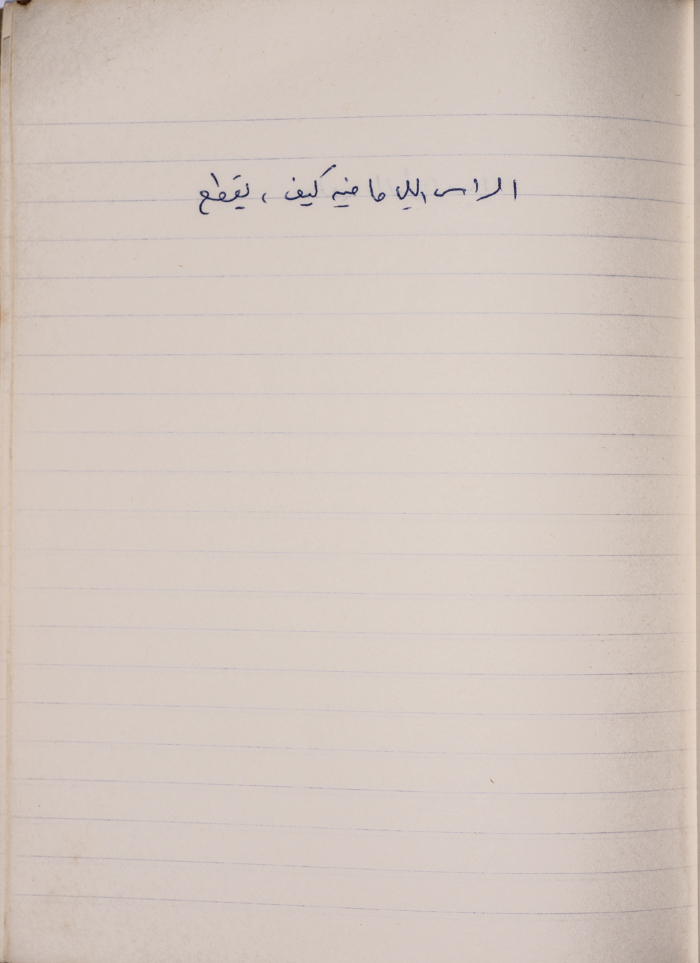 الراس اللي ما فيه كيف ، يقطع